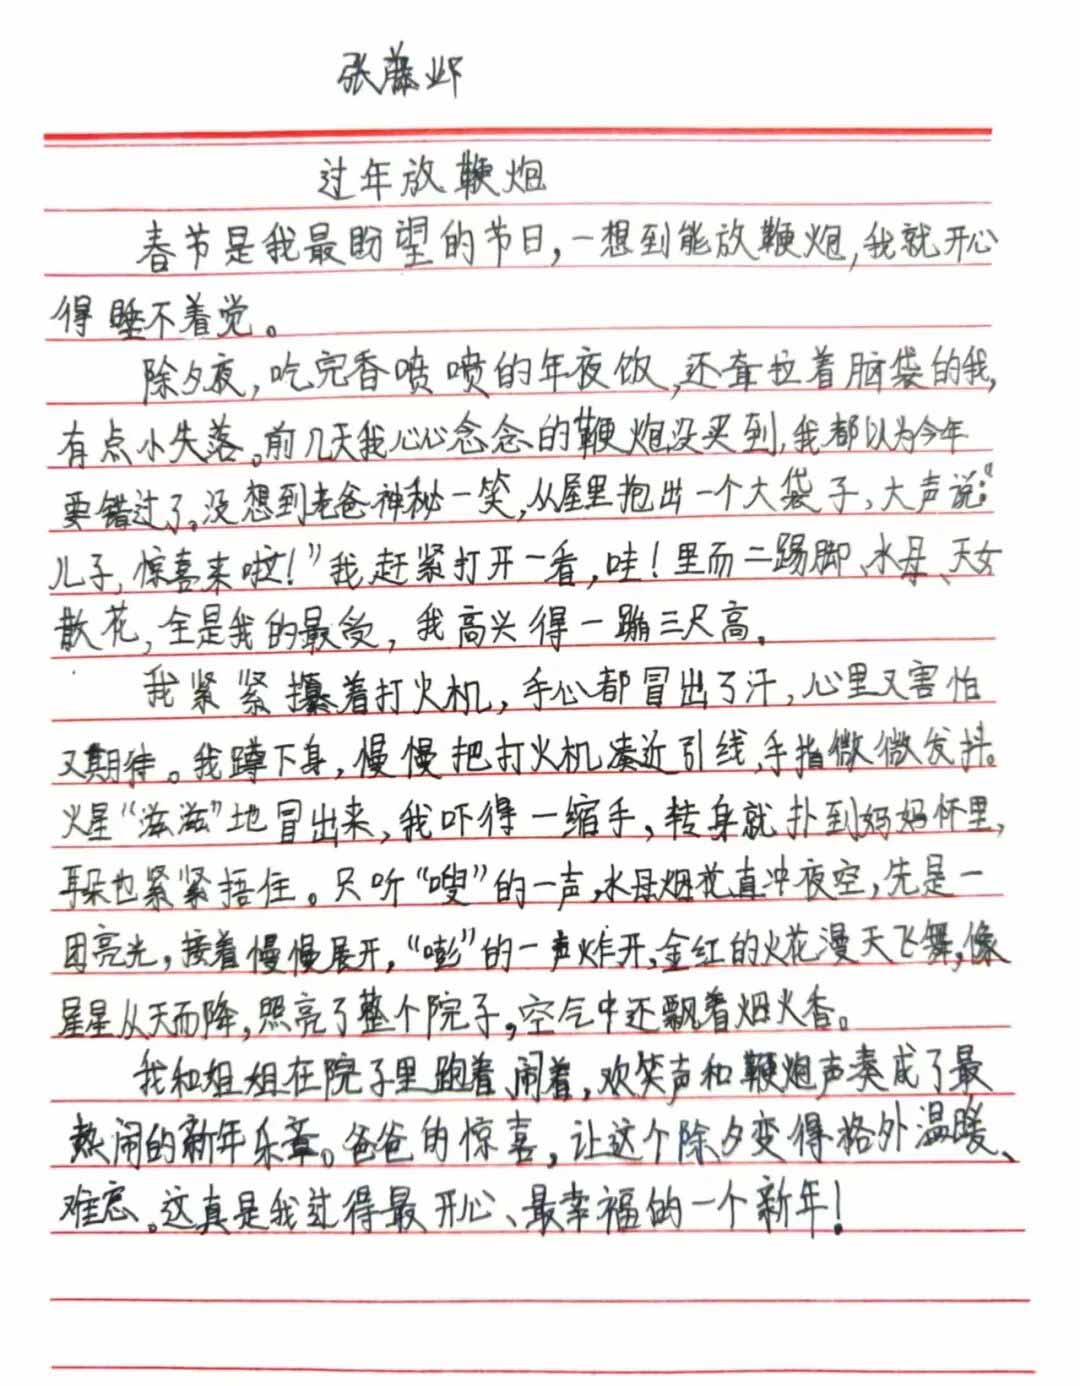 张藤邺
过年放鞭炮
春节是我最盼望的节日,一想到能放鞭炮,我就开心
得睡不着觉。
除夕夜,吃完香喷喷的年夜饭,还耷拉着脑袋的我,
有点小失落。前几天我心心念念的鞭炮没买到,我都以为今年
要错过了。没想到老爸神秘一笑,从屋里抱出一个大袋子,大声说:“
儿子,惊喜来啦!”我赶紧打开一看,哇!里而二踢脚、水母、天女
散花,全是我的最爱,我高兴得一蹦三尺高。
我紧紧攥着打火机,手心都冒出了汗,心里又害怕
又期待。我蹲下身,慢慢把打火机凑近引线,手指微微发抖。
火星“滋滋”地冒出来,我吓得一缩手,转身就扑到妈妈怀里,
耳朵也紧紧捂住。只听“嗖”的一声,水母烟花直冲夜空,先是一
团亮光,接着慢慢展开,“嘭”的一声炸开,金红的火花漫天飞舞,像
星星从天而降,照亮了整个院子,空气中还飘着烟火香。
我和姐姐在院子里跑着闹着,欢笑声和鞭炮声奏成了最
热闹的新年乐章。爸爸的惊喜,让这个除夕变得格外温暖、
难忘。这真是我过得最开心、最幸福的一个新年!